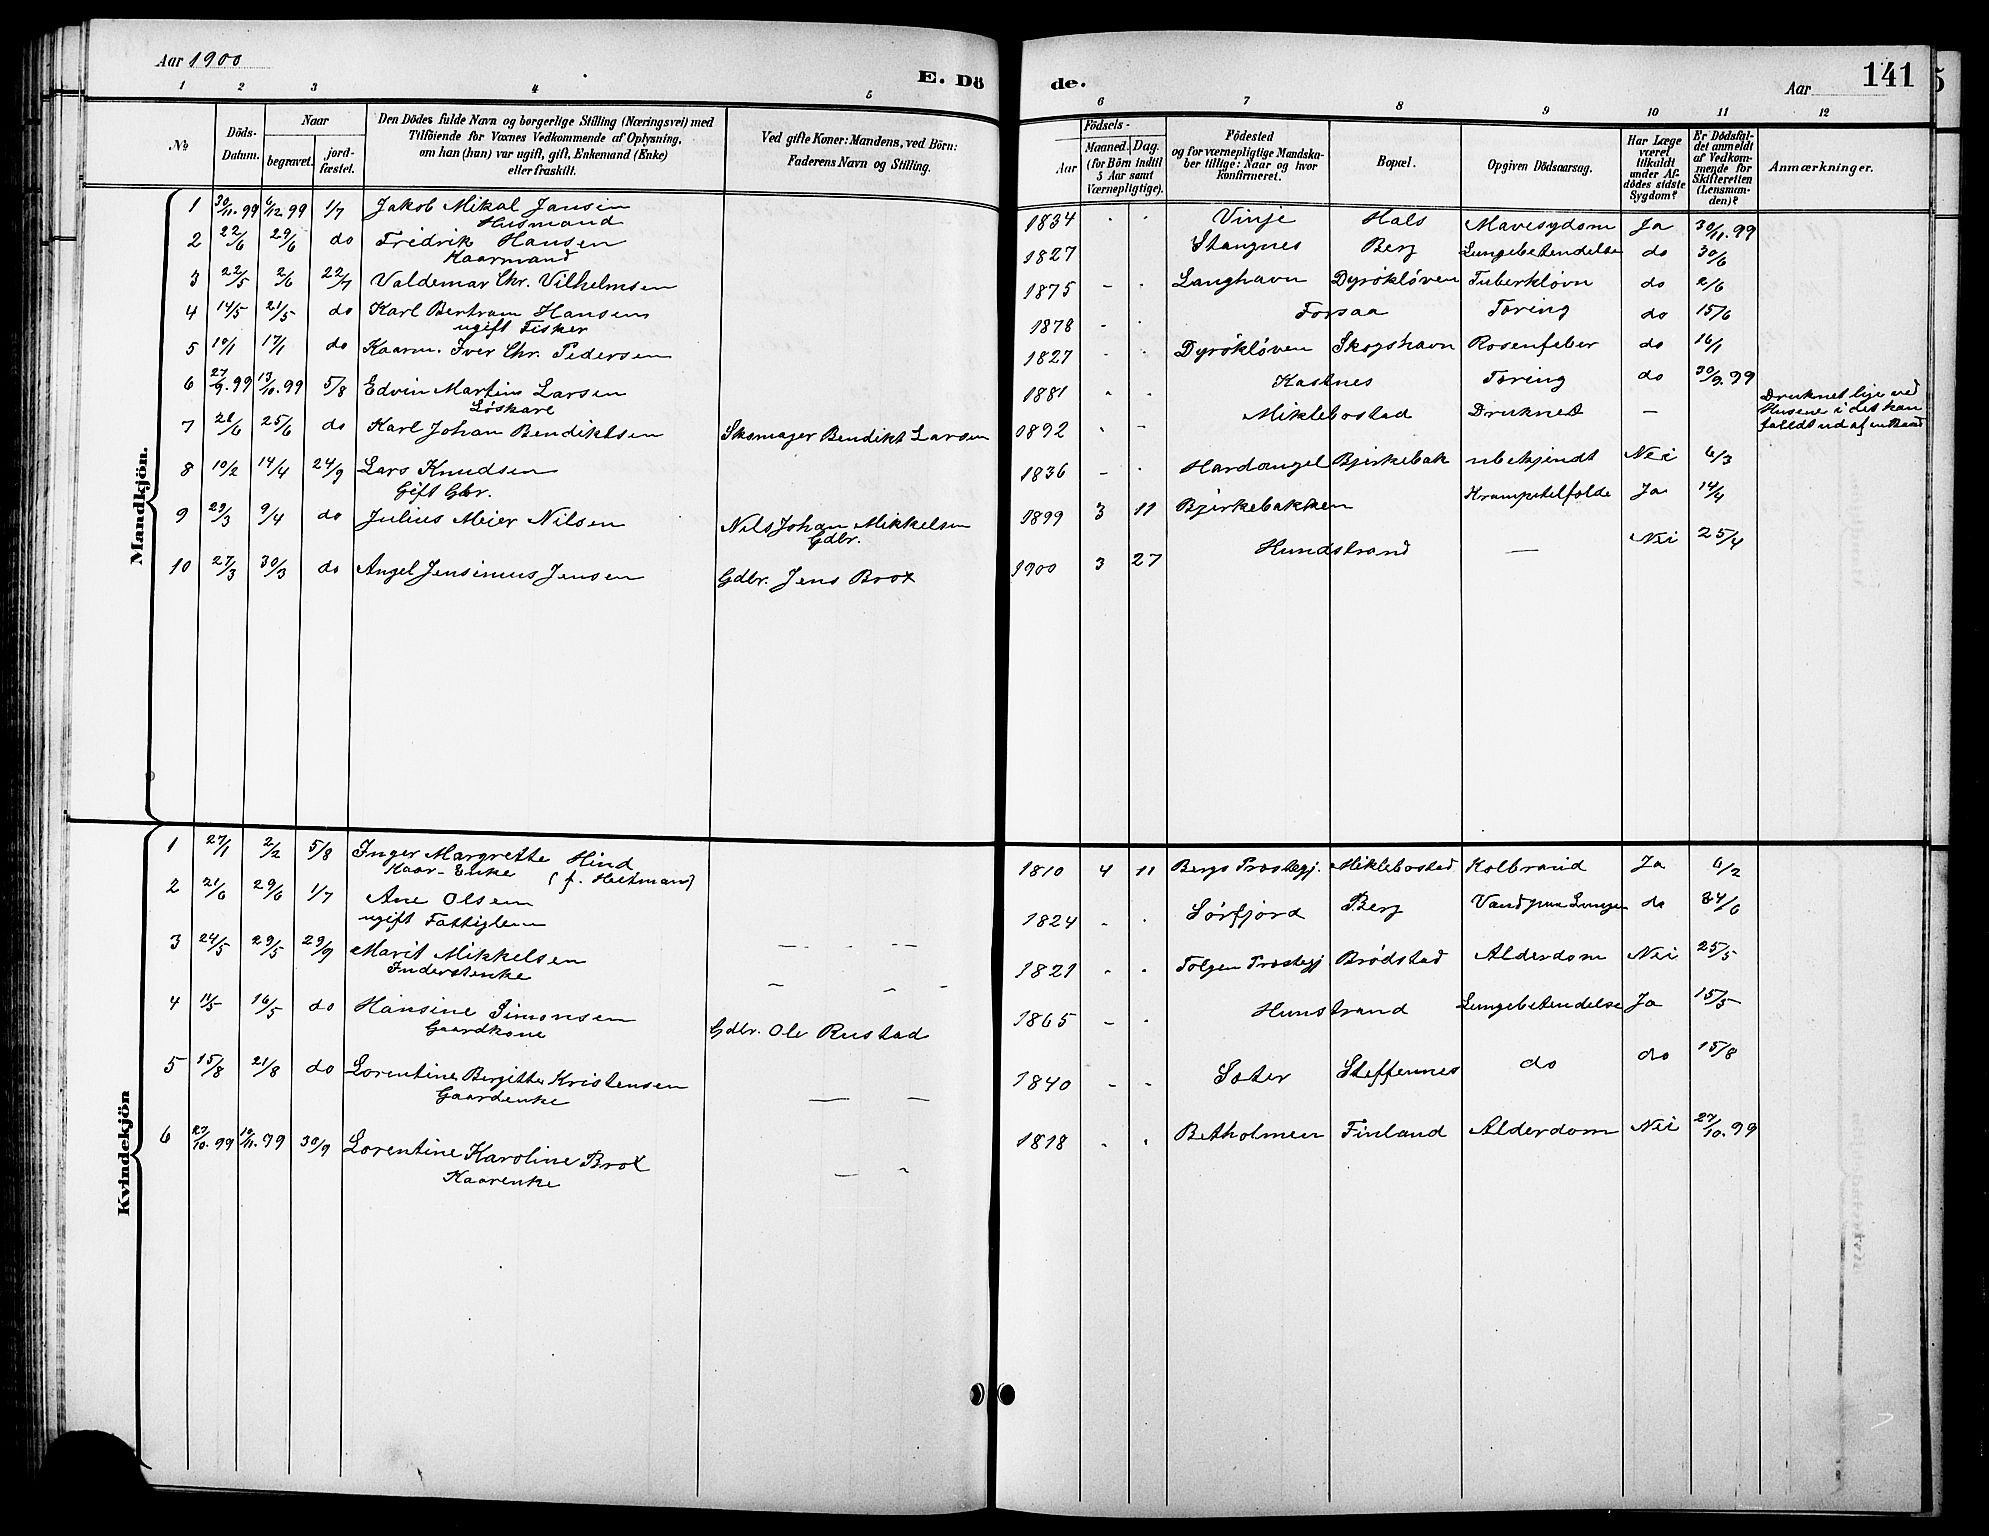 Aar 1900
E. Dö
de.
Aar
141
1 2 3 4 5
6 7 8 9 10 11 12
No
Döds-Datum.
Naar
begravet.
jord-fæstet.
Den Dödes fulde Navn og borgerlige Stilling (Næringsvei) med
Tilföiende for Voxnes Vedkommende af Oplysning,
om han (hun) var ugift, gift, Enkemand (Enke)
eller fraskilt.
Ved gifte Koner: Mandens, ved Börn:
Faderens Navn og Stilling.
Födsels-
Aar
Maaned. Dag.
(for Börn indtil
5 Aar samt
Værnepligtige).
Födested
og for værnepligtige Mandska-
ber tillige: Naar og hvor
konfirmeret.
Bopæl.
Opgiven Dödsaarsag.
Har Læge
været
tilkaldt
under Af-
dödes sidste
Sygdom?
Er Dödsfal-
det anmeldt
af Vedkom-
mende for
Skifteretten
(Lensman-
den)?
Anmærkninger.
Mandkjön.
1 30/11.99 6/12 99 1/7 Jakob Mikal Jansen 1834 Vinje Hals Mavesygdom Ja 30/11.99
Husmand
2 22/6 29/6 do Fredrik Hansen 1827 Stangnes Berg Lungebetendelse do 30/6
Kaarmand
3 22/5 2/6 22/7 Valdemar Chr. Vilhelmsen 1875 - Langhavn Dyrökløven Tuberkløvn do 2/6
4 14/5 21/5 do Karl Bertram Hansen 1878 - Forsaa Toring do 15/6
ugift Fisker
5 10/1 17/1 do Kaarm. Iver Chr. Pedersen 1827 Dyrökløven Skogshavn Rosenfeber do 16/1
6 27/9.99 13/10.99 5/8 Edvin Martins Larsen 1881 Kastnes Toring do 30/9.99
Løskarl
7 21/6 25/6 do Karl Johan Bendiktsen Skomager Bendikt Larsen 1892 Miklebostad Druknet —
Druknet lige ved
Husene i det han
faldt ud af en Baad
8 10/2 14/4 24/9 Lars Knudsen 1836 - Hardangel Bjerkebak ubekjendt Nei 6/3
Gift Gbr.
9 29/3 9/4 do Julius Meier Nilsen Nils Johan Mikkelsen 1899 3 11 Bjerkebakken Krampetilfælde Ja 14/4
Gdbr.
10 27/3 30/3 do Angel Jensinius Jensen Gdbr. Jens Brox 1900 3 27 Hundstrand — Nei 25/4
Kvindekjön
1 27/1 2/2 5/8 Inger Margrette Hind 1810 4 11 Bergs Prostegj. Miklebostad Kolbrand Ja 6/2
Kaar-Enke (f. Heitmann)
2 21/6 29/6 1/7 Ane Olsen 1824 Sørfjord Berg Vand paa Lungen do 24/6
ugift Fattiglem
3 24/5 29/5 29/9 Marit Mikkelsen 1821 Tolgen Prostegj Brödstad Alderdom Nei 25/5
Inderstenke
4 11/5 16/5 do Hansine Simonsen 1865 Hunstrand Lungebetendelse Ja 15/5
Gaardkone Gdbr. Ole Rustad
5 15/8 21/8 do Lorentine Bergitte Kristensen 1840 Sater Steffennes do do 15/8
Gaardenke
6 27/10.99 10/11.99 30/9 Lorentine Karoline Brox 1818 Betholmen Finland Alderdom Nei 27/10.99
Kaarenke